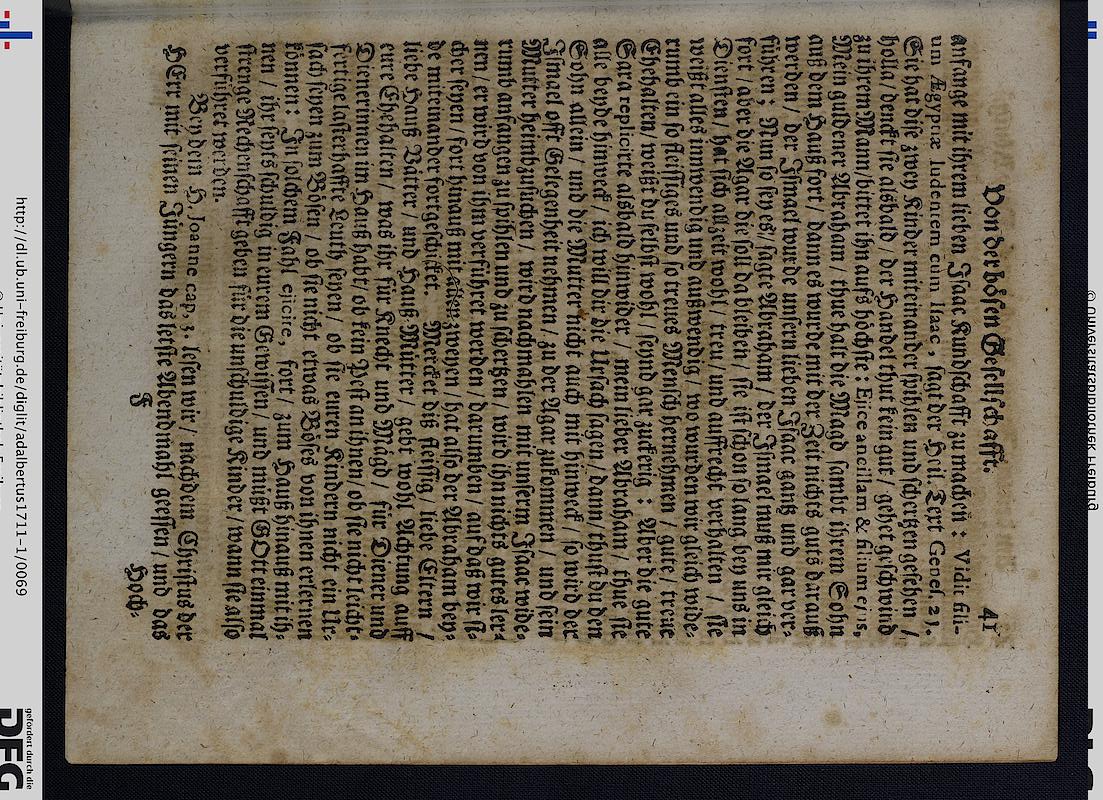 Von der bösen Gesellschafft. 41
anfange mit ihrem lieben Isaac Kundschafft zu machen: Vidit fili-
um Ægyptiæ ludentem cum Isaac, sagt der Heil. Text Genes. 21.
Sie hat dise zwey Kinder miteinander spihlen und schertzen gesehen /
holla / denckt sie alsbald / der Handel thut kein gut / gehet geschwind
zu ihrem Mann / bittet ihn auffs höchste: Ejice ancillam & filium ejus,
Mein guldener Abraham / thue halt die Magd sambt ihrem Sohn
auß dem Hauß fort / dann es wurde mit der Zeit nichts guts darauß
werden / der Ismael wurde unsern lieben Isaac gantz und gar ver-
führen; Nun so seye es / sagte Abraham / der Ismael muß mir gleich
fort / aber die Agar die soll da bleiben / sie ist schon so lang bey uns in
Diensten / hat sich allzeit wohl / treu / und auffrecht verhalten / sie
weißt alles inwendig und außwendig / wo wurden wir gleich wide-
rumb ein so fleissiges und so treues Mensch hernehmen / gute / treue
Ehehalten / weißt du selbst wohl / seynd gar zuckerig: Aber die gute
Sara replicirte alsbald hinwider / mein lieber Abraham / thue sie
alle beyde hinweck / ich will dir die Ursach sagen / dann / thust du den
Sohn allein / und die Mutter nicht auch mit hinweck / so wird der
Ismael offt Gelegenheit nehmen / zu der Agar zukommen / und sein
Mutter heimbzusuchen / wird nachmahlen mit unsern Isaac wide-
rumb anfangen zu spihlen und zu schertzen / wird ihn nichts gutes ler-
nen / er wird von ihm verführet werden / darumben / auf daß wir si-
cher seyen / fort hinauß mit allen zweyen / hat also der Abraham bey-
de miteinander fortgeschicket. Mercket diß fleissig / liebe Eltern /
liebe Hauß-Vätter / und Hauß-Mütter / gebt wohl Achtung auff
eure Ehehalten / was ihr für Knecht und Mägd / für Diener und
Dienerinnen im Hauß habt / ob kein Pest an ihnen / ob sie nicht leicht-
fertige lasterhaffte Leuth seyen / ob sie euren Kindern nicht ein Ur-
sach seyen zum Bösen / ob sie nicht etwas Böses von ihnen erlernen
können: In solchem Fahl ejicite, fort / zum Hauß hinauß mit ih-
nen / ihr seyts schuldig in eurem Gewissen / und müßt GOtt einmal
strenge Rechenschafft geben für die unschuldige Kinder / wann sie also
verführet werden.
Bey dem H. Joanne cap. 3. lesen wir / nachdem Christus der
HErr mit seinen Jüngern das letste Abendmahl gessen / und das
F Hoch-
http://dl.ub.uni-freiburg.de/diglit/adalbertus1711-1/0069
gefördert durch die
DFG